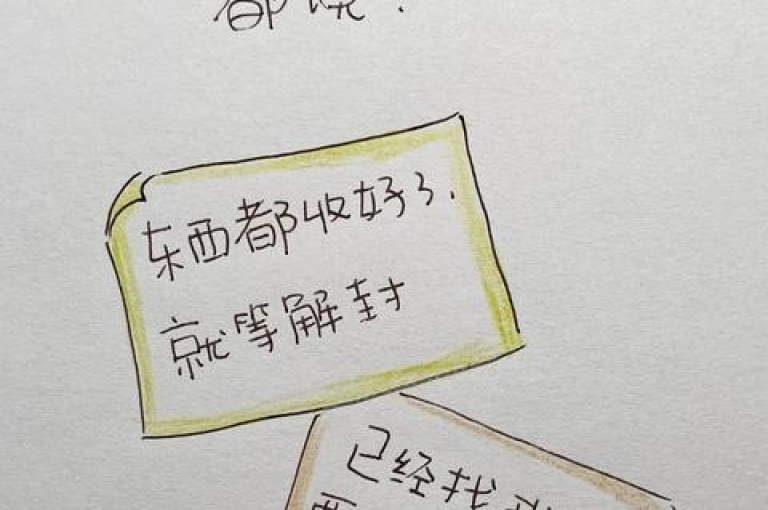 东西都收好了.
就等解封
已经找